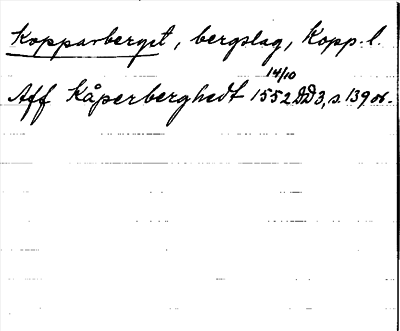 Kopparberget, bergslag, Kopp. l.
14/10
Aff Kåperberghedt 1552 DD3, s. 139 or.